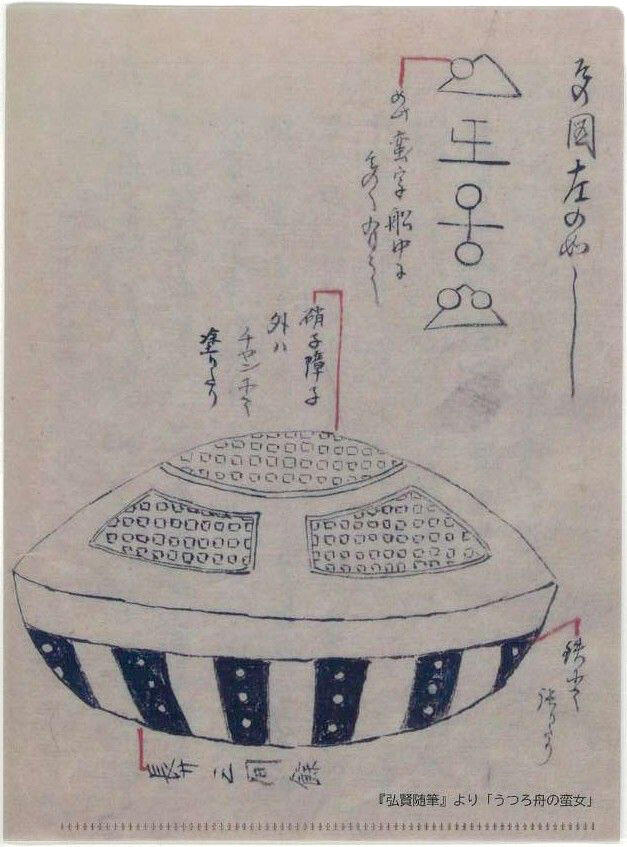 その図左の如し
此蛮字船中に
多く有之
硝子障子
外ハ
チヤンにて
塗りたり
鉄にて
張りたり
長サ三間餘
『弘賢随筆』より「うつろ舟の蛮女」